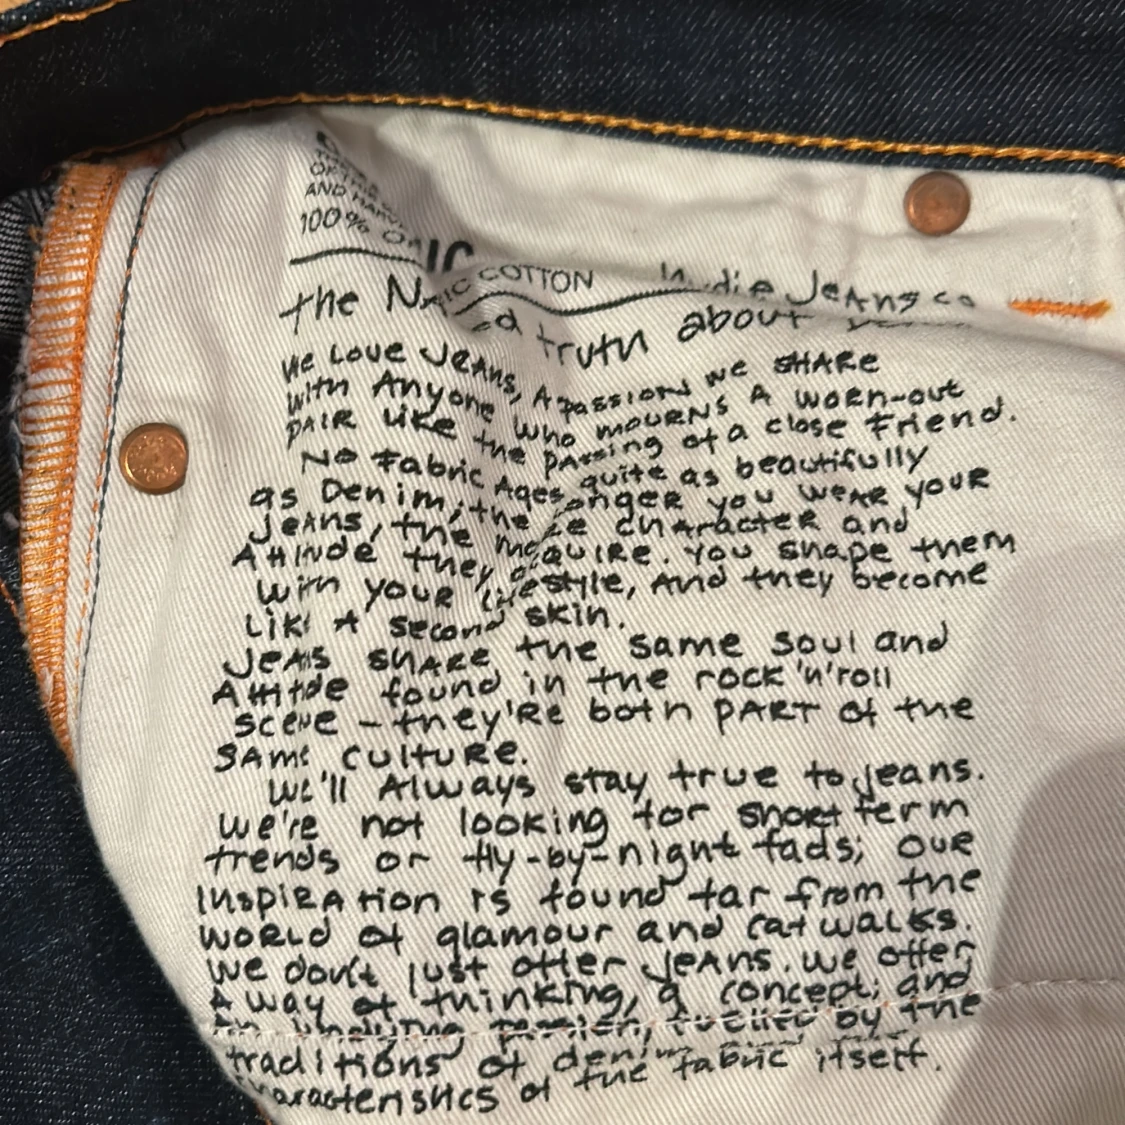 OF THE
AND HAR
100% O
IC COTTON
Nudie Jeans co
the N d truth about
We Love Jeans, A passion we SHARE
with Anyone who mourns A worn-out
PAIR Like the passing of a close Friend.
No Fabric Ages quite as beautifully
as Denim; the onger you wear your
Jeans, the mo e character and
Attitude they acquire. You shape them
with your lifestyle, And they become
Like A second skin.
Jeans share the same soul and
Attitude found in the rock 'n' roll
scene - they're both PART of the
same culture.
We'll Always stay true to jeans.
We're not looking for short term
trends or fly-by-night fads; our
Inspiration is found far from the
world of glamour and catwalks.
We don't just offer Jeans. We offer
A way of thinking, a concept; and
An undying passion, fuelled by the
traditions of denim
characteristics of the fabric itself.